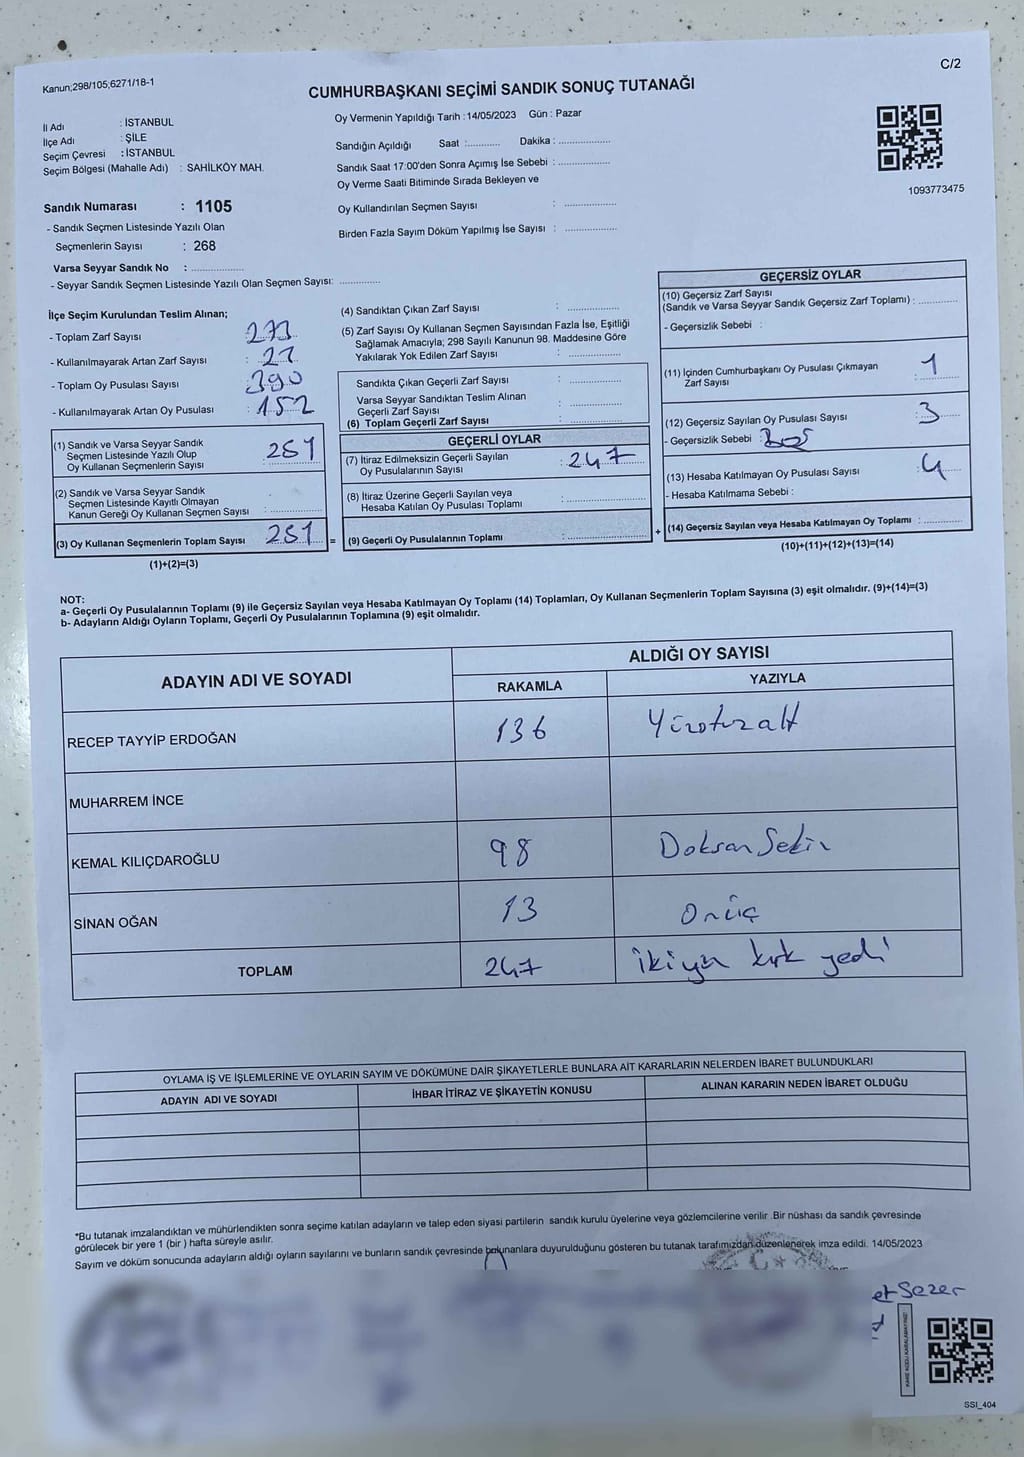 Kanun;298/105;6271/18-1
C/2
CUMHURBAŞKANI SEÇİMİ SANDIK SONUÇ TUTANAĞI
İl Adı : İSTANBUL
İlçe Adı : ŞİLE
Seçim Çevresi : İSTANBUL
Seçim Bölgesi (Mahalle Adı) : SAHİLKÖY MAH.
Sandık Numarası : 1105
- Sandık Seçmen Listesinde Yazılı Olan
Seçmenlerin Sayısı : 268
Varsa Seyyar Sandık No : ....................
- Seyyar Sandık Seçmen Listesinde Yazılı Olan Seçmen Sayısı: ....................
Oy Vermenin Yapıldığı Tarih : 14/05/2023 Gün : Pazar
Sandığın Açıldığı Saat :........... Dakika : ..................
Sandık Saat 17:00'den Sonra Açımış İse Sebebi : ..................
Oy Verme Saati Bitiminde Sırada Bekleyen ve
Oy Kullandırılan Seçmen Sayısı : ..................
Birden Fazla Sayım Döküm Yapılmış İse Sayısı : ..................
1093773475
İlçe Seçim Kurulundan Teslim Alınan;
- Toplam Zarf Sayısı 273
- Kullanılmayarak Artan Zarf Sayısı : 22
- Toplam Oy Pusulası Sayısı 390
- Kullanılmayarak Artan Oy Pusulası : 152
(1) Sandık ve Varsa Seyyar Sandık
Seçmen Listesinde Yazılı Olup
Oy Kullanan Seçmenlerin Sayısı 251
(2) Sandık ve Varsa Seyyar Sandık
Seçmen Listesinde Kayıtlı Olmayan
Kanun Gereği Oy Kullanan Seçmen Sayısı : ..................
(3) Oy Kullanan Seçmenlerin Toplam Sayısı 251 =
(1)+(2)=(3)
(4) Sandıktan Çıkan Zarf Sayısı : ..................
(5) Zarf Sayısı Oy Kullanan Seçmen Sayısından Fazla İse, Eşitliği
Sağlamak Amacıyla; 298 Sayılı Kanunun 98. Maddesine Göre
Yakılarak Yok Edilen Zarf Sayısı : ..................
Sandıkta Çıkan Geçerli Zarf Sayısı : ..................
Varsa Seyyar Sandıktan Teslim Alınan
Geçerli Zarf Sayısı : ..................
(6) Toplam Geçerli Zarf Sayısı : ..................
GEÇERLİ OYLAR
(7) İtiraz Edilmeksizin Geçerli Sayılan
Oy Pusulalarının Sayısı : 247
(8) İtiraz Üzerine Geçerli Sayılan veya
Hesaba Katılan Oy Pusulası Toplamı : ..................
(9) Geçerli Oy Pusulalarının Toplamı : .................. +
GEÇERSİZ OYLAR
(10) Geçersiz Zarf Sayısı
(Sandık ve Varsa Seyyar Sandık Geçersiz Zarf Toplamı) : ..............
- Geçersizlik Sebebi :
(11) İçinden Cumhurbaşkanı Oy Pusulası Çıkmayan
Zarf Sayısı : 1
(12) Geçersiz Sayılan Oy Pusulası Sayısı : 3
- Geçersizlik Sebebi :
(13) Hesaba Katılmayan Oy Pusulası Sayısı : 4
- Hesaba Katılmama Sebebi :
(14) Geçersiz Sayılan veya Hesaba Katılmayan Oy Toplamı : ..............
(10)+(11)+(12)+(13)=(14)
NOT:
a- Geçerli Oy Pusulalarının Toplamı (9) ile Geçersiz Sayılan veya Hesaba Katılmayan Oy Toplamı (14) Toplamları, Oy Kullanan Seçmenlerin Toplam Sayısına (3) eşit olmalıdır. (9)+(14)=(3)
b- Adayların Aldığı Oyların Toplamı, Geçerli Oy Pusulalarının Toplamına (9) eşit olmalıdır.
ADAYIN ADI VE SOYADI
ALDIĞI OY SAYISI
RAKAMLA YAZIYLA
RECEP TAYYİP ERDOĞAN 136 Yüzotuzaltı
MUHARREM İNCE
KEMAL KILIÇDAROĞLU 98 Doksan Sekiz
SİNAN OĞAN 13 Onüç
TOPLAM 247 ikiyüz kırk yedi
OYLAMA İŞ VE İŞLEMLERİNE VE OYLARIN SAYIM VE DÖKÜMÜNE DAİR ŞİKAYETLERLE BUNLARA AİT KARARLARIN NELERDEN İBARET BULUNDUKLARI
ADAYIN ADI VE SOYADI İHBAR İTİRAZ VE ŞİKAYETİN KONUSU ALINAN KARARIN NEDEN İBARET OLDUĞU
*Bu tutanak imzalandıktan ve mühürlendikten sonra seçime katılan adayların ve talep eden siyasi partilerin sandık kurulu üyelerine veya gözlemcilerine verilir .Bir nüshası da sandık çevresinde
görülecek bir yere 1 (bir ) hafta süreyle asılır.
Sayım ve döküm sonucunda adayların aldığı oyların sayılarını ve bunların sandık çevresinde bulunanlara duyurulduğunu gösteren bu tutanak tarafımızdan düzenlenerek imza edildi. 14/05/2023
et Sezer
KARE KODU KARALAMAYINIZ!
SSI_404